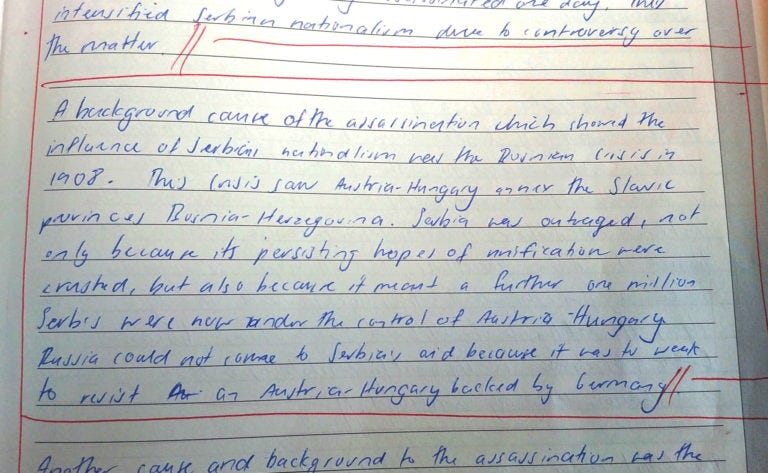 intensified Serbian nationalism due to controversy over
the matter.
A background cause of the assassination which showed the
influence of Serbian nationalism was the Bosnian Crisis in
1908. This Crisis saw Austria-Hungary annex the Slavic
provinces Bosnia-Herzegovina. Serbia was outraged, not
only because its persisting hopes of unification were
crushed, but also because it meant a further one million
Serbs were now under the control of Austria-Hungary
Russia could not come to Serbia's aid because it was to weak
to resist an Austria-Hungary backed by Germany.
Another cause and background to the assassination was the